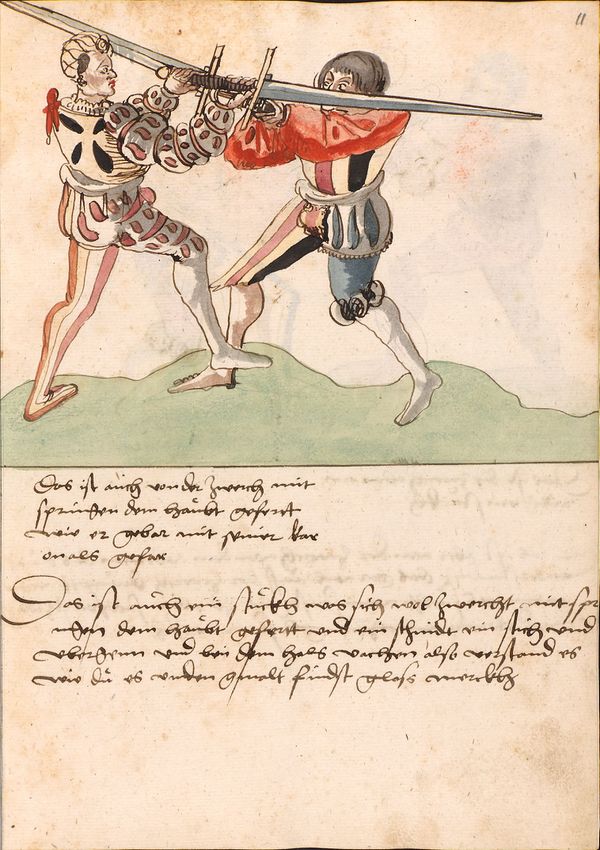 11
Das ist auch von der zwerch mit
springen dem haubt gefert
wie er gebar mit seiner kar
on als gefar
Das ist auch ein stückh was sich wol zwercht mit spr
ingen dem haubt gefertt und ein schnidt ein stich und
und bei dem hals vachen also verstand es
wie du es unden gmalt findst gloss merckh